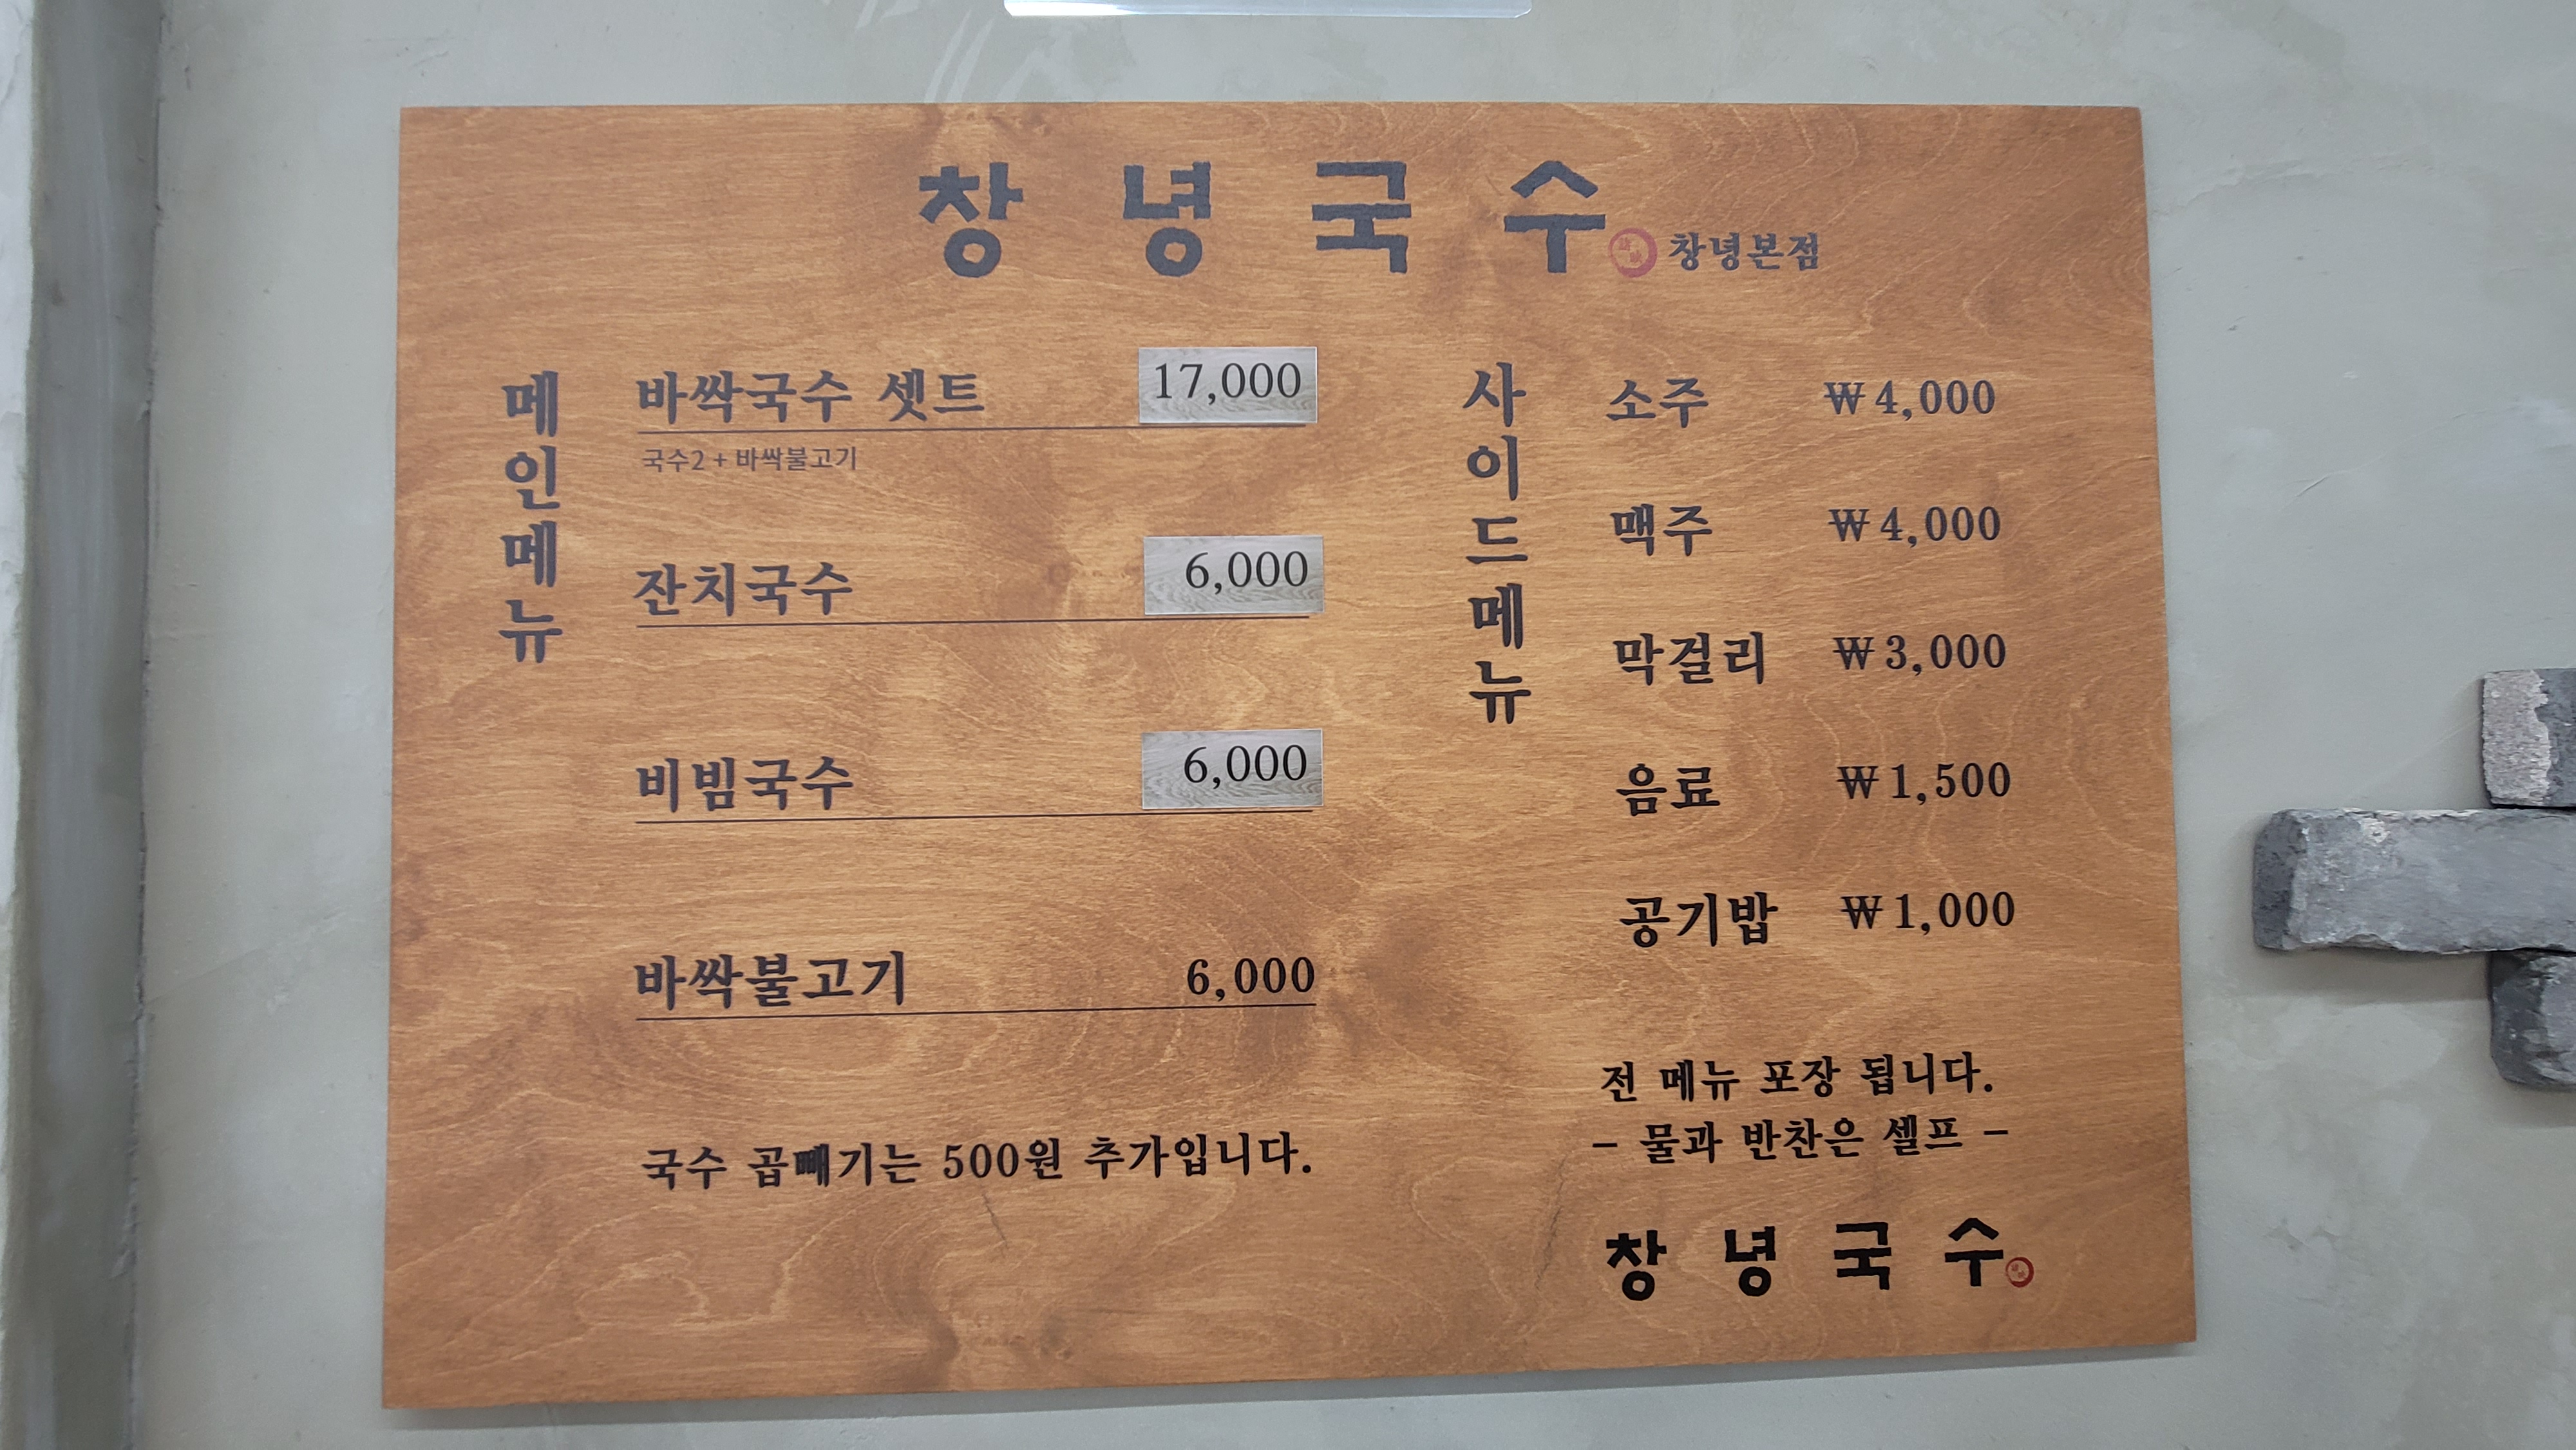 창녕국수 창녕본점
메인메뉴
바싹국수 셋트 17,000
국수2 + 바싹불고기
잔치국수 6,000
비빔국수 6,000
바싹불고기 6,000
국수 곱빼기는 500원 추가입니다.
사이드메뉴
소주 ₩4,000
맥주 ₩4,000
막걸리 ₩3,000
음료 ₩1,500
공기밥 ₩1,000
전 메뉴 포장 됩니다.
- 물과 반찬은 셀프 -
창녕국수